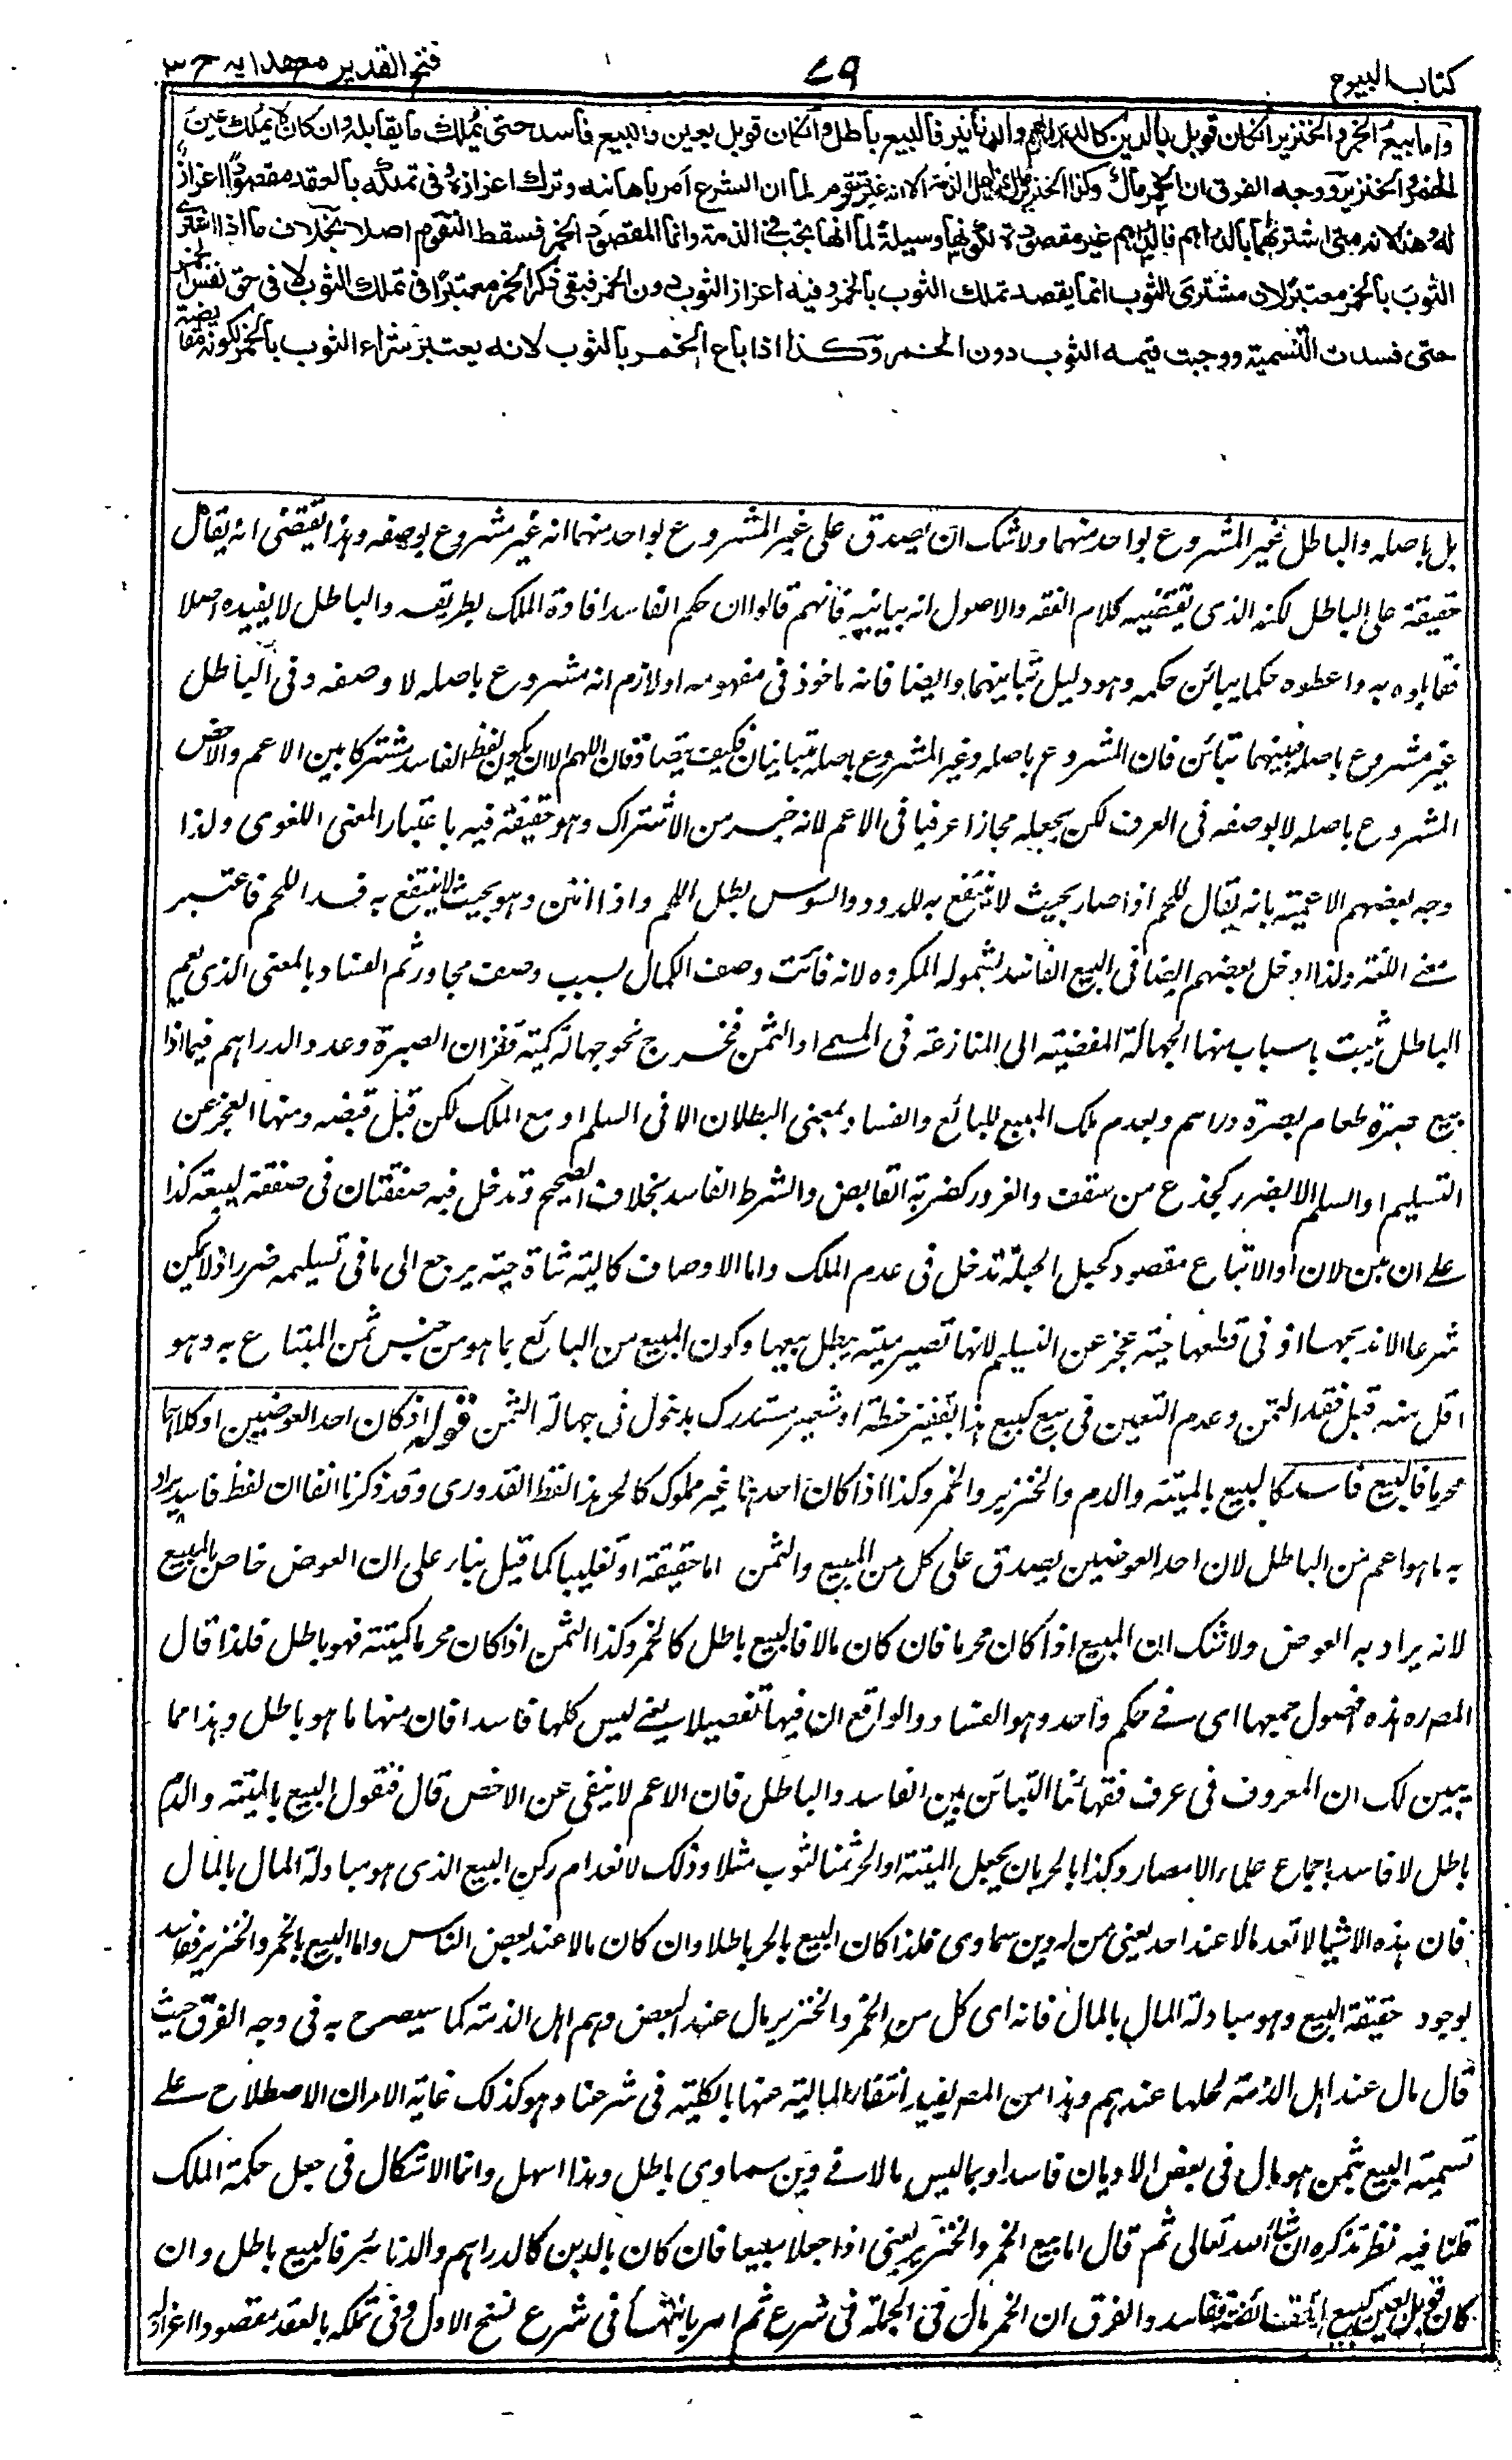 كتاب البيوع
٧٩
فتح القدير مع هدايه ج ٣
واما بيع الخمر والخنزير ان كان قوبل بالدين كالدراهم والدنانير فالبيع باطل وان كان قوبل بعين فالبيع فاسد حتى يملك ما يقابله وان كان لا يملك عين
الخمر والخنزير ووجه الفرق ان الخمر مال وكذا الخنزير مال عند اهل الذمة الا انه غير متقوم لما ان الشرع امر باهانته وترك اعزازه وفى تملكه بالعقد مقصودا اعزاز
له وهذا لانه متى اشتراهما بالدراهم فالدراهم غير مقصودة لكونها وسيلة لما انها تجب فى الذمة وانما المقصود الخمر فسقط التقوم اصلا بخلاف ما اذا اشترى
الثوب بالخمر معتبر لان مشترى الثوب انما يقصد تملك الثوب بالخمر وفيه اعزاز الثوب دون الخمر فبقى ذكر الخمر معتبرا فى تملك الثوب لا فى حق نفس الخمر
حتى فسدت التسمية ووجبت قيمه الثوب دون الخمر وكذا اذا باع الخمر بالثوب لانه يعتبر شراء الثوب بالخمر لكونه مقايضة
بل باصله والباطل غير المشروع بواحد منهما ولا شك ان يصدق على غير المشروع بواحد منهما انه غير مشروع بوصفه وهذا يقتضى انه يقال
حقيقة على الباطل لكنه الذى يقتضيه كلام الفقه والاصول انه يباينه فانهم قالوا ان حكم الفاسد افادة الملك بطريقه والباطل لا يفيده اصلا
فقابلوه به واعطوه حكما يبائن حكمه وهو دليل تباينهما وايضا فانه ماخوذ فى مفهومه او لازم انه مشروع باصله لا وصفه وفى الباطل
غير مشروع باصله فبينهما تبائن فان المشروع باصله وغير المشروع باصله متباينان فكيف يتصادقان اللهم الا ان يكون لفظ الفاسد مشتركا بين الاعم والاخص
المشروع باصله لا بوصفه فى العرف لكن يجعله مجازا عرفيا فى الاعم لانه خير من الاشتراك وهو حقيقة فيه باعتبار المعنى اللغوى ولذا
وجه بعضهم الاعمية بانه يقال للحم اذا صار بحيث لا ينتفع به للدود والسوس بطل اللحم واذا انتن وهو بحيث لا ينتفع به فسد اللحم فاعتبر
معنى اللغة ولذا ادخل بعضهم ايضا فى البيع الفاسد لشموله المكروه لانه فائت وصف الكمال بسبب وصف مجاور ثم الفساد بالمعنى الذى يعم
الباطل يثبت باسباب منها الجهالة المفضية الى المنازعة فى المبيع او الثمن فخرج نحو جهالة كمية قفزان الصبرة وعدد الدراهم فيما اذا
بيع صبرة طعام بصرة دراهم وبعدم ملك المبيع للبائع والفساد بمعنى البطلان الا فى السلم او مع الملك لكن قبل قبضه ومنها العجز عن
التسليم او السلم الا بضرر كجذع من سقف والغرور كضربة القابض والشرط الفاسد بخلاف الصحيح وتدخل فيه صفقتان فى صفقة لبيعه كذا
على ان الاتباع مقصود كحبل الحبلة تدخل فى عدم الملك واما الاوصاف كالية شاة حية يرجع الى ما فى تسليمه ضرر اذ لا يمكن
شرعا الا بذبحها او فى قطعها حية عجز عن التسليم لانها تصير ميتة يبطل بيعها وكون المبيع من البائع بما هو من جنس ثمن المبتاع به وهو
اقل منه قبل نقد الثمن وعدم التعين فى بيع كبيع هذا بقفيز حنطة او شعير مستدرك بدخول فى جهالة الثمن قوله اذا كان احد العوضين او كلاهما
محرما فالبيع فاسد كالبيع بالميتة والدم والخنزير والخمر وكذا اذا كان احدهما غير مملوك كالحر هذا لفظ القدورى وقد ذكرنا انفا ان لفظ فاسد يراد
به ما هو اعم من الباطل لان احد العوضين يصدق على كل من المبيع والثمن اما حقيقة او تغليبا كما قيل بناء على ان العوض خاص بالمبيع
لانه يراد به العوض ولا شك ان المبيع اذا كان محرما فان كان مالا فالبيع باطل كالخمر وكذا الثمن اذا كان محرما كميتة فهو باطل فلذا قال
المصره هذه فصول جمعها اى فى حكم واحد وهو الفساد والواقع ان فيها تفصيلا يعنى ليس كلها فاسدا فان منها ما هو باطل وهذا مما
يبين لك ان المعروف فى عرف فقهائنا التبائن بين الفاسد والباطل فان الاعم لا ينفى عن الاخص قال فنقول البيع بالميتة والدم
باطل لا فاسد باجماع علماء الامصار وكذا بالحر بان يجعل الميتة او الحر ثمنا لثوب مثلا وذلك لانعدام ركن البيع الذى هو مبادلة المال بالمال
فان هذه الاشيا لا تعد مالا عند احد يعنى ممن له دين سماوى فلذا كان البيع بالحر باطلا وان كان مالا عند بعض الناس واما البيع بالخمر والخنزير ففاسد
لوجود حقيقة البيع وهو مبادلة المال بالمال فانه اى كل من الخمر والخنزير مال عند البعض وهم اهل الذمة كما سيصرح به فى وجه الفرق حيث
قال مال عند اهل الذمة لحلها عندهم وهذا من المصر يفيد انتفاء المالية عنها بالكلية فى شرعنا وهو كذلك غاية الامر ان الاصطلاح على
تسمية البيع بثمن هو مال فى بعض الاديان فاسد او بما ليس مالا فى دين سماوى باطل وهذا اسهل وانما الاشكال فى جعل حكمة الملك
قلنا فيه نظر نذكره ان شاء الله تعالى ثم قال اما بيع الخمر والخنزير يعنى اذا جعلا مبيعا فان كان بالدين كالدراهم والدنانير فالبيع باطل وان
كان قوبل بعين كبيع ففاسد والفرق ان الخمر مال فى الجملة فى شرع ثم امر باهانتها فى شرع نسخ الاول وفى تملكه بالعقد مقصودا اعزاز له